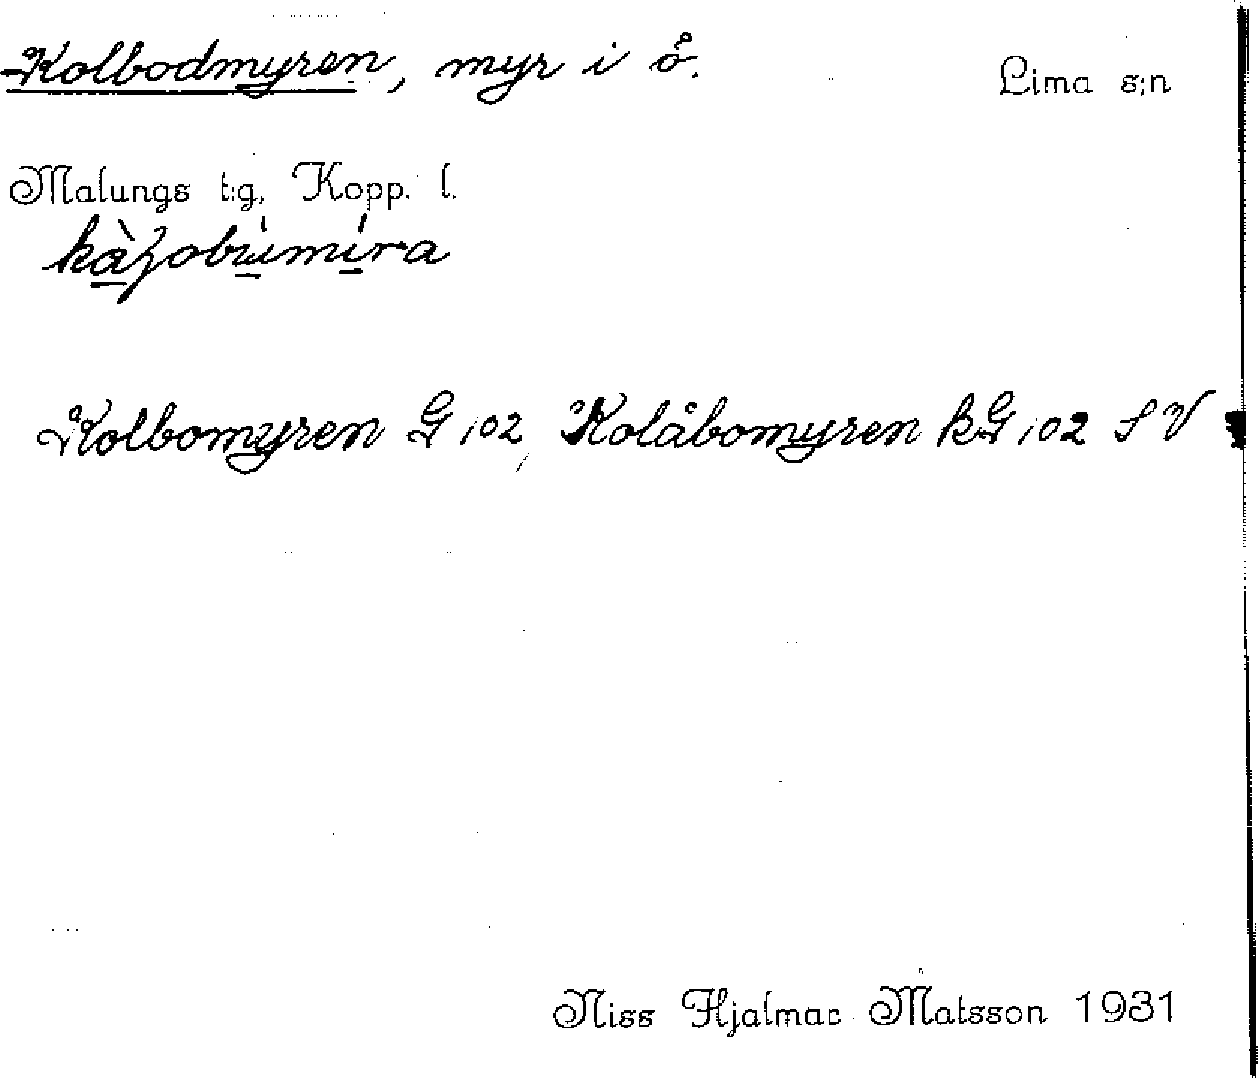 Kolbodmyren, myr i ö. Lima s:n
Malungs t:g, Kopp. l.
Kolbomyren G 102, Kolåbomyren kG 102 SV
Niss Hjalmar Matsson 1931